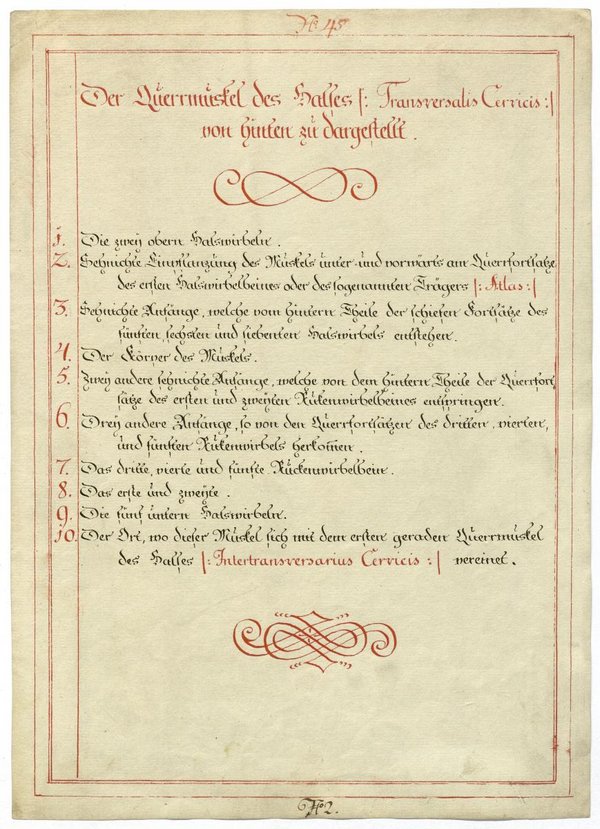 No 45
Der Querrmuskel des Halses |: Transversalis Cervicis :|
von hinten zu dargestellt.
1. Die zwey obern Halswirbeln.
2. Sehnichte Einpflanzung des Muskels unter- und vorwärts am Querrfortsatze
des ersten Halswirbelbeines oder des sogenannten Trägers |: Atlas :|
3. Sehnichte Anfänge, welche vom hintern Theile der schiefen Fortsätze des
fünften sechsten und siebenten Halswirbels entstehen.
4. Der Körper des Muskels.
5. Zwey andere sehnichte Anfänge, welche von dem hintern Theile der Querrfort
sätze des ersten und zweyten Rükenwirbelbeines entspringen.
6. Drey andere Anfänge, so von den Querrfortsätzen des dritten, vierten,
und fünften Rükenwirbels herkom̄en.
7. Das dritte, vierte und fünfte Rückenwirbelbein.
8. Das erste und zweyte.
9. Die fünf untern Halswirbeln.
10. Der Ort, wo dieser Muskel sich mit dem ersten geraden Querrmuskel
des Halses |: Intertransversarius Cervicis :| vereinet.
No 2.